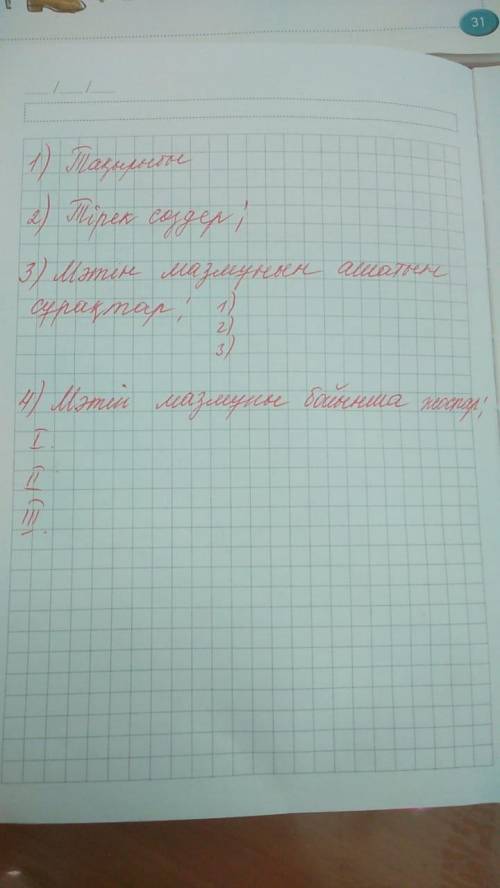 31
__/__/__
1) Тақырыбы
2) Тірек сөздер;
3) Мәтін мазмұнын ашатын
сұрақтар; 1)
2)
3)
4) Мәтін мазмұны бойынша жоспар;
I.
II
III.